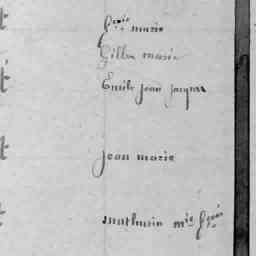 fçois marie
Gilles marie
Emile jean jacques
jean marie
mathurin mie fçois